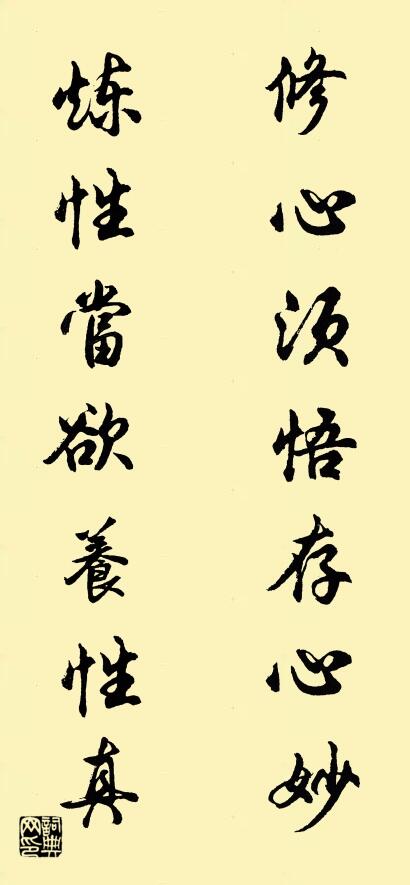 修心须悟存心妙
炼性當欲養性真
詞典网印